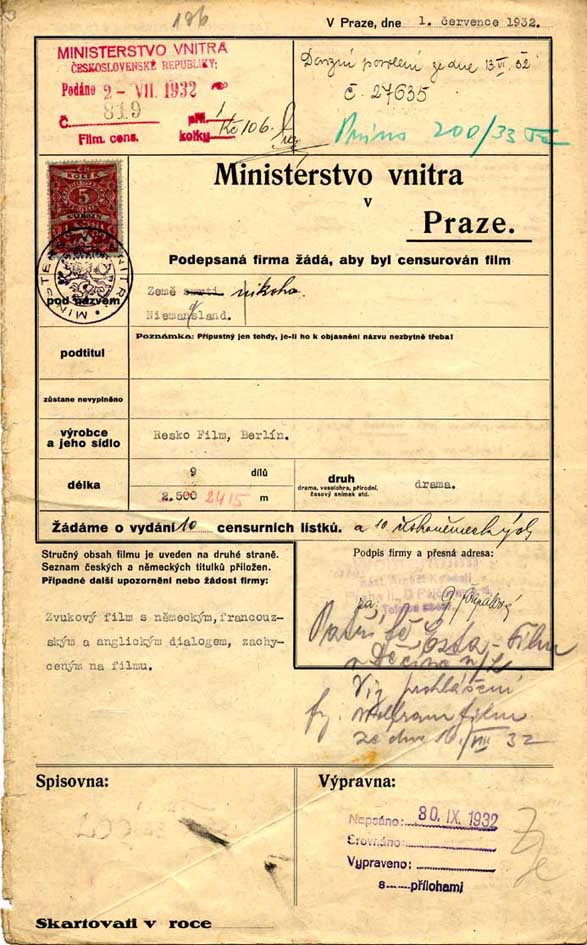 186
V Praze, dne 1. července 1932.
MINISTERSTVO VNITRA
ČESKOSLOVENSKÉ REPUBLIKY:
Podáno 2 - VII. 1932
Č. 819 příl. 1
Film. cens. kolky Kč 106.
Dovozní povolení ze dne 13.VI.32
Č. 27635
200/33
Ministérstvo vnitra
v
Praze.
5
Podepsaná firma žádá, aby byl censurován film
pod názvem
Země smrti nikoho.
Niemandsland.
podtitul
Poznámka: Přípustný jen tehdy, je-li ho k objasnění názvu nezbytně třeba!
zůstane nevyplněno
výrobce
a jeho sídlo
Resko Film, Berlín.
délka
9 dílů
2.500 2415 m
druh
drama, veselohra, přírodní,
časový snímek atd.
drama.
Žádáme o vydání 10 censurních lístků. a 10 českoněmeckých
Stručný obsah filmu je uveden na druhé straně.
Seznam českých a německých titulků přiložen.
Případné další upozornění nebo žádost firmy:
Podpis firmy a přesná adresa:
Zvukový film s německým,francouz-
ským a anglickým dialogem, zachy-
ceným na filmu.
Patří fě - Film
Děčína n/L
Viz prohlášení
fy. Wolfram film
ze dne 10/VIII 32
Spisovna:
Výpravna:
Napsáno: 30. IX. 1932
Srovnáno:
Vypraveno:
s přílohami
Skartovati v roce